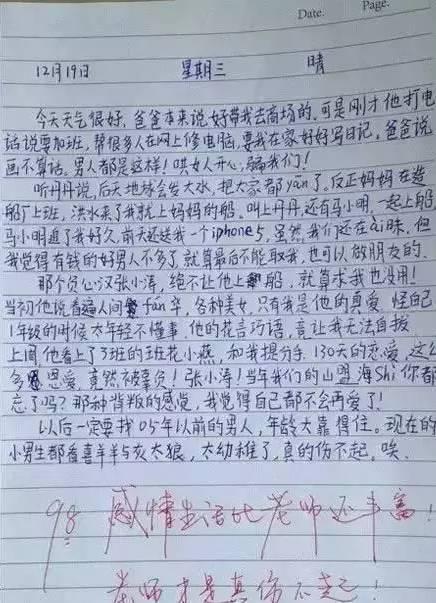 Date.    Page.
12月19日    星期三    晴
今天天气很好，爸爸本来说好带我去商场的，可是刚才他打电
话说要加班，帮很多人在网上修电脑，要我在家好好写日记。爸爸说
画不算话，男人都是这样！哄女人开心，骗我们！
听丹丹说，后天地球会发大水，把大家都yān了。反正妈妈在造
船厂上班，洪水来了我就上妈妈的船。叫上丹丹，还有马小明，一起上船，
马小明追了我好久，前天还送我一个iphone5，虽然我们还在ài昧，但
我觉得有钱的好男人不多了，就算最后不能取我，也可以做朋友的。
那个负心汉张小涛，绝不让他上船，就算求我也没用！
当初他说看遍人间fán华，各种美女，只有我是他的真爱，怪自己
1年级的时候太年轻不懂事，他的花言巧语，竟让我无法自拔
上周他看上了3班的班花小燕，和我提分手，130天的恋爱，这么
多恩爱，竟然被辜负！张小涛！当年我们的山盟海Shi你都
忘了吗？那种背叛的感觉，我觉得自己都不会再爱了！
以后一定要找05年以前的男人，年龄大靠得住。现在的
小男生都看喜羊羊与灰太狼，太幼稚了，真的伤不起，唉。
98 感情生活比老师还丰富！
老师才是真伤不起！